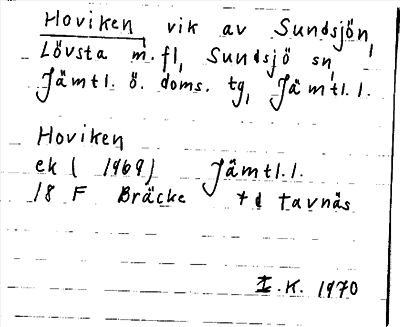 Hoviken vik av Sundsjön,
Lövsta m.fl, Sundsjö sn,
Jämtl. ö. doms. tg, Jämtl.l.
Hoviken
ek ( 1969) Jämtl.l.
18 F Bräcke td tavnäs
I.K. 1970